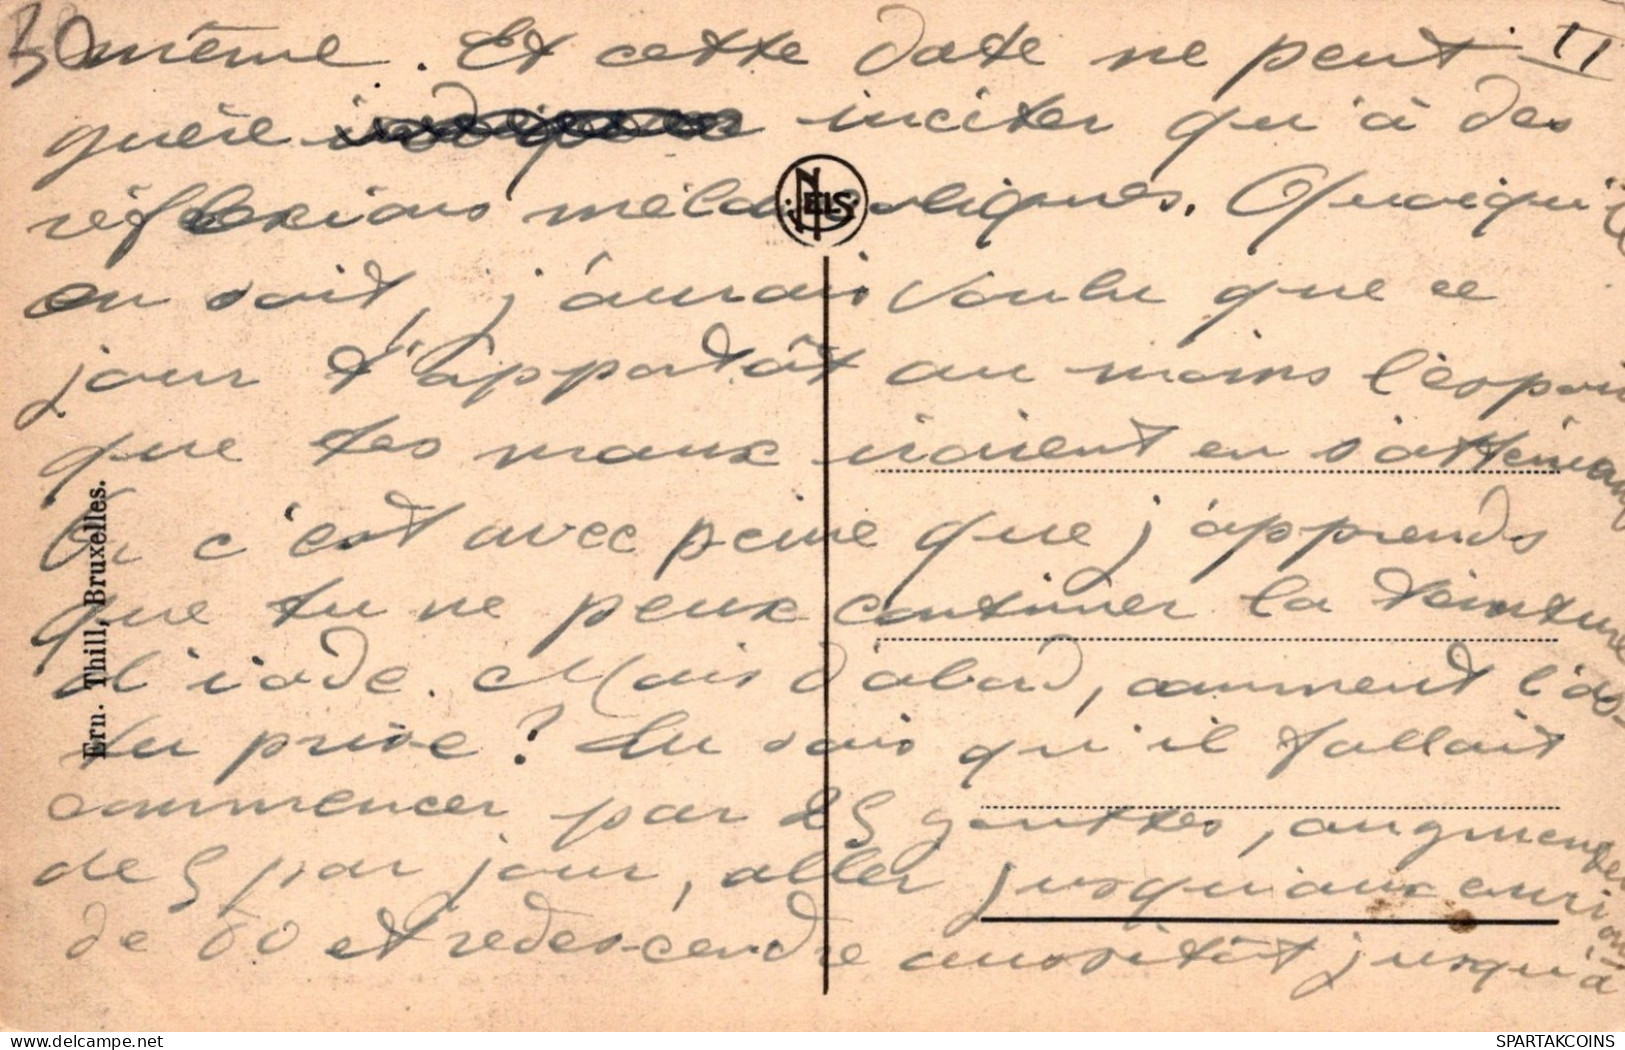 30 même. Et cette date ne peut II
guère inciter qu'à des
réflexions mélancoliques. Quoiqu'il
en soit, j'aurais voulu que ce
jour t'apportât au moins l'espoir
que tes maux iraient en s'atténuant
Or c'est avec peine que j'apprends
que tu ne peux continuer la teinture
d'iode. Mais d'abord, comment l'as-
tu prise? Tu sais qu'il fallait
commencer par 25 gouttes, augmenter
de 5 par jour, aller jusqu'aux environs
de 80 et redescendre aussitôt jusqu'à
NELS
Ern. Thill, Bruxelles.
delcampe.net
SPARTAKCOINS